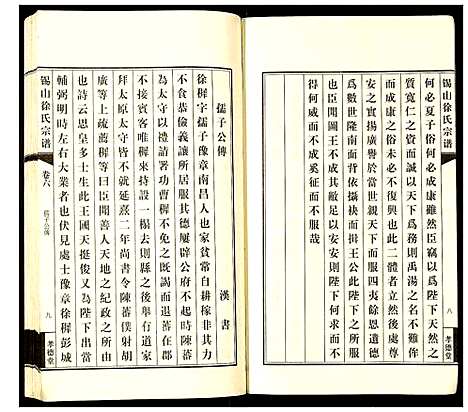 何必夏子俗何必成康雖然臣竊以爲陛下天然之
質寬仁之資而誠以天下爲務則禹湯之名可侔
而成康之俗未必不復興也此二體者立然後處尊
安之實揚廣譽於當世親天下而服四夷餘恩遺德
爲數世隆南面背依攝袂而揖王公此陛下之所服
也臣聞圖王不成其敝足以安安則陛下何求而不
得何威而不成奚征而不服哉
錫山徐氏宗譜
八
孝德堂
孺子公傳
漢書
徐穉字孺子豫章南昌人也家貧常自耕稼非其力
不食恭儉義讓所居服其德屢辟公府不起時陳蕃
爲太守以禮請署功曹穉不免之既謁而退蕃在郡
不接賓客唯穉來特設一榻去則縣之後舉有道家
拜太原太守不就延熹二年尚書令陳蕃僕射胡
廣等上疏薦穉等曰臣聞善人天地之紀政之所由
也詩云思皇多士生此王國天挺俊乂爲陛下出當
輔弼明時左右大業者也伏見處士豫章徐穉彭城
錫山徐氏宗譜
卷六
孺子公傳
九
孝德堂